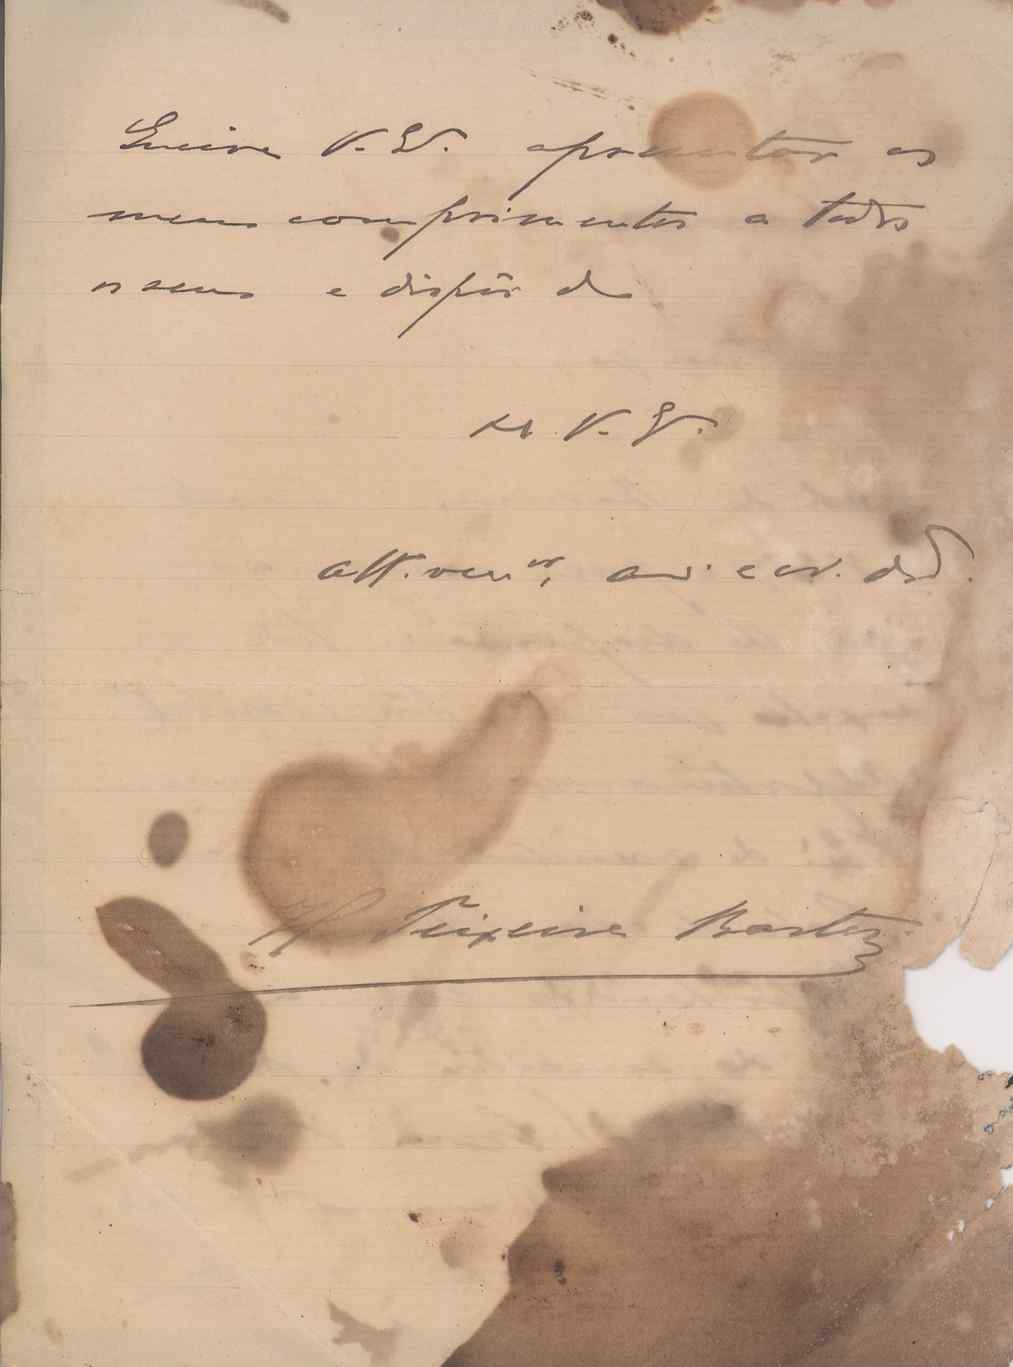 Queira V. Ex. apresentar os
meus comprimentos a todos
os seus e dispôr de
V. Ex.
att. ven.or, am.o e
Teixeira Bastos